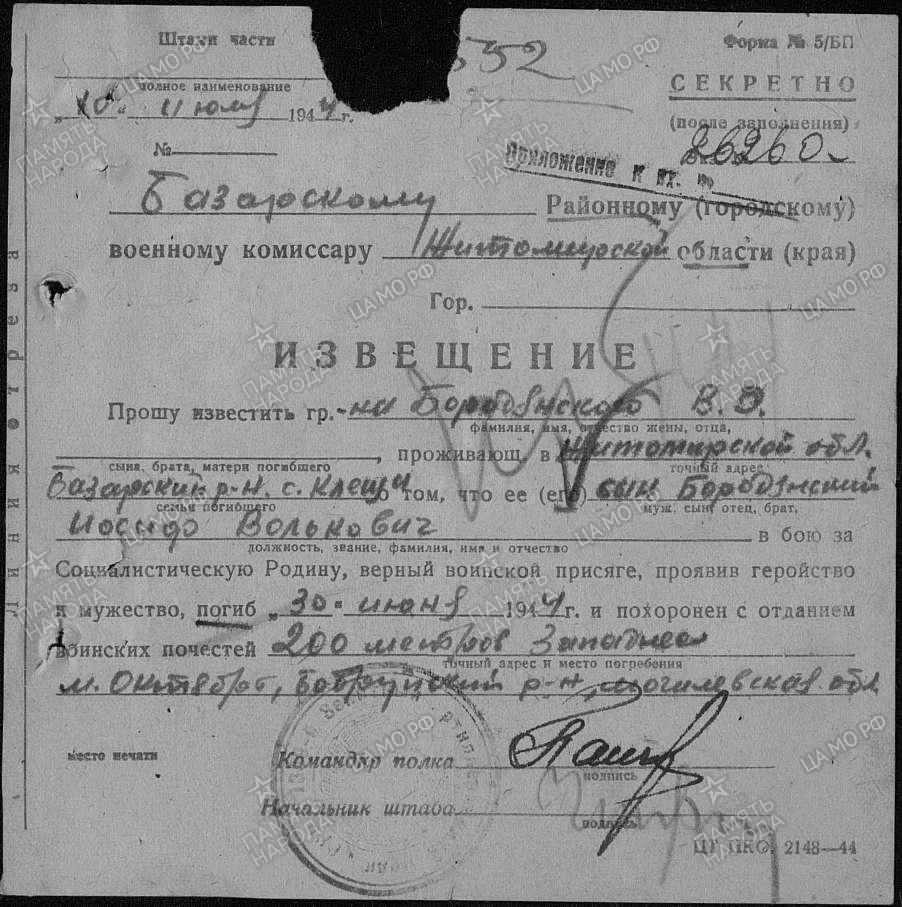 Штамп части
552
Форма № 5/БП
СЕКРЕТНО
полное наименование
(после заполнения)
„10“ июля 1944 г.
№
26260
Приложение к вх. №
Базарскому Районному (городскому)
военному комиссару Житомирской области (края)
Гор.
ИЗВЕЩЕНИЕ
Прошу известить гр.-на Бородянского В. Э.
фамилия, имя, отчество жены, отца,
, проживающ. в Житомирской обл.
сына, брата, матери погибшего
точный адрес
Базарский р-н. с. Клещи о том, что ее (его) сын Бородянский
семьи погибшего
муж, сын, отец, брат,
Иосидо Волькович в бою за
должность, звание, фамилия, имя и отчество
Социалистическую Родину, верный воинской присяге, проявив геройство
и мужество, погиб „30“ июня 1944 г. и похоронен с отданием
воинских почестей 200 метров Западнее
точный адрес и место погребения
м. Октябрь, Бобруйский р-н, Могилевская обл.
место печати
Командир полка
подпись
Начальник штаба
подпись
ЦТ НКО. 2148—44
Линия
ПАМЯТЬ НАРОДА
ЦАМО РФ